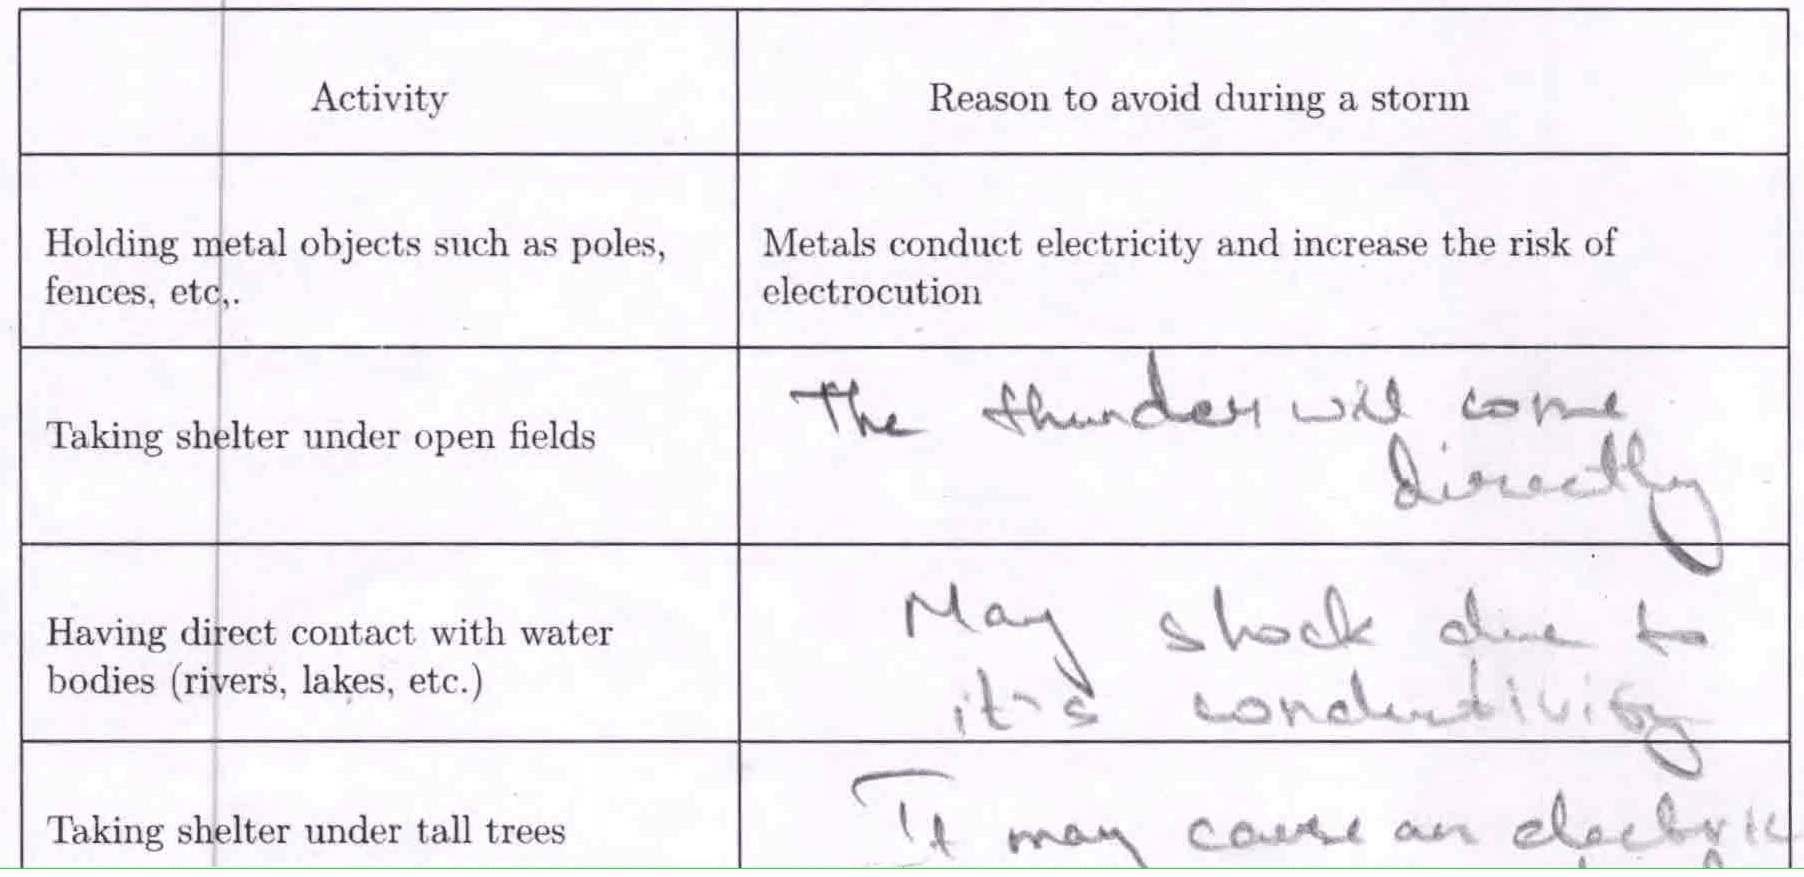 Activity
Reason to avoid during a storm
Holding metal objects such as poles,
fences, etc,.
Metals conduct electricity and increase the risk of
electrocution
Taking shelter under open fields
The thunder will come
directly
Having direct contact with water
bodies (rivers, lakes, etc.)
May shock due to
it's conductivity
Taking shelter under tall trees
It may cause an electric